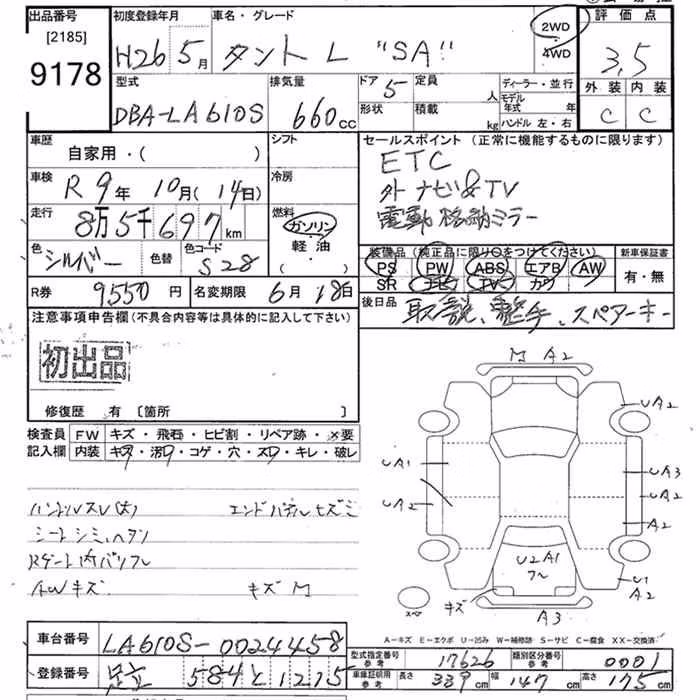 出品番号 初度登録年月 車名・グレード 2WD 4WD 評価点
[2185]
9178 H26 5月 タント L "SA" 3,5
型式 排気量 ドア 5 定員 人 ディーラー・並行 外装 内装
DBA-LA610S 660cc 形状 積載 kg モデル年式 年 ハンドル 左・右 C C
車歴 自家用・( ) シフト セールスポイント (正常に機能するものに限ります)
車検 R9年 10月(14日) 冷房 ETC
外ナビ&TV
走行 8万5千697km 燃料 ガソリン・軽油・( ) 電動格納ミラー
色 シルバー 色替 色コード S28 装備品 (純正品に限り○をつけてください) 新車保証書
PS PW ABS エアB AW 有・無
SR ナビ TV カワ
R券 9550円 名変期限 6月18日 後日品 取説、整手、スペアーキー
注意事項申告欄(不具合内容等は具体的に記入して下さい)
初出品
修復歴 有 [箇所 ]
検査員記入欄 FW キズ・飛石・ヒビ割・リペア跡・×要
内装 キズ・汚レ・コゲ・穴・スレ・キレ・破レ
ハンドルスレ(大) エンドパネルヒズミ
シートシミ、ヘタリ
Rゲート内バリフレ
AWキズ キズ M
M A2
UA2
UA1 UA3
UA2 UA2
A2
U2 A1
フレ
U1
A2
スペア キズ A3
A-キズ E-エクボ U-凹み W-補修跡 S-サビ C-腐食 XX-交換済
車台番号 LA610S-0024458
登録番号 足立 584 と 1215
型式指定番号 参考 17626 類別区分番号 参考 0001
車庫証明用 参考 長さ 339cm 幅 147cm 高さ 175cm